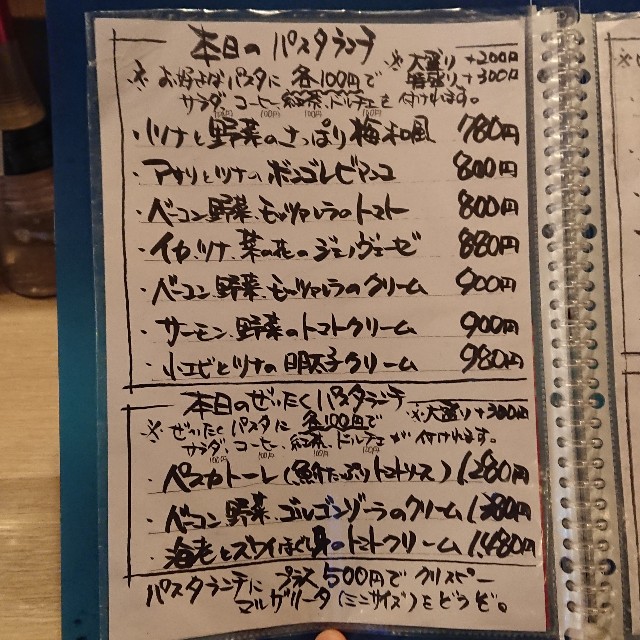 本日のパスタランチ
※大盛り +200円
特盛り +300円
※お好きなパスタに各100円で
サラダ、コーヒー、紅茶、ドルチェを付けれます。
100円 100円 100円 100円
・ツナと野菜のさっぱり梅和風 780円
・アサリとツナのボンゴレビアンコ 800円
・ベーコン、野菜、モッツァレラのトマト 800円
・イカ、ツナ、菜の花のジェノヴェーゼ 880円
・ベーコン、野菜、モッツァレラのクリーム 900円
・サーモン、野菜のトマトクリーム 900円
・小エビとツナの明太子クリーム 980円
本日のぜいたくパスタランチ
※大盛り+300円
※ぜいたくパスタに各100円で
サラダ、コーヒー、紅茶、ドルチェが付けれます。
100円 100円 100円
・ペスカトーレ(魚介たっぷりトマトソース) 1,280円
・ベーコン、野菜、ゴルゴンゾーラのクリーム
・海老とズワイほぐし身のトマトクリーム 1,480円
パスタランチにプラス500円でクリスピー
マルゲリータ(ミニサイズ)をどうぞ。